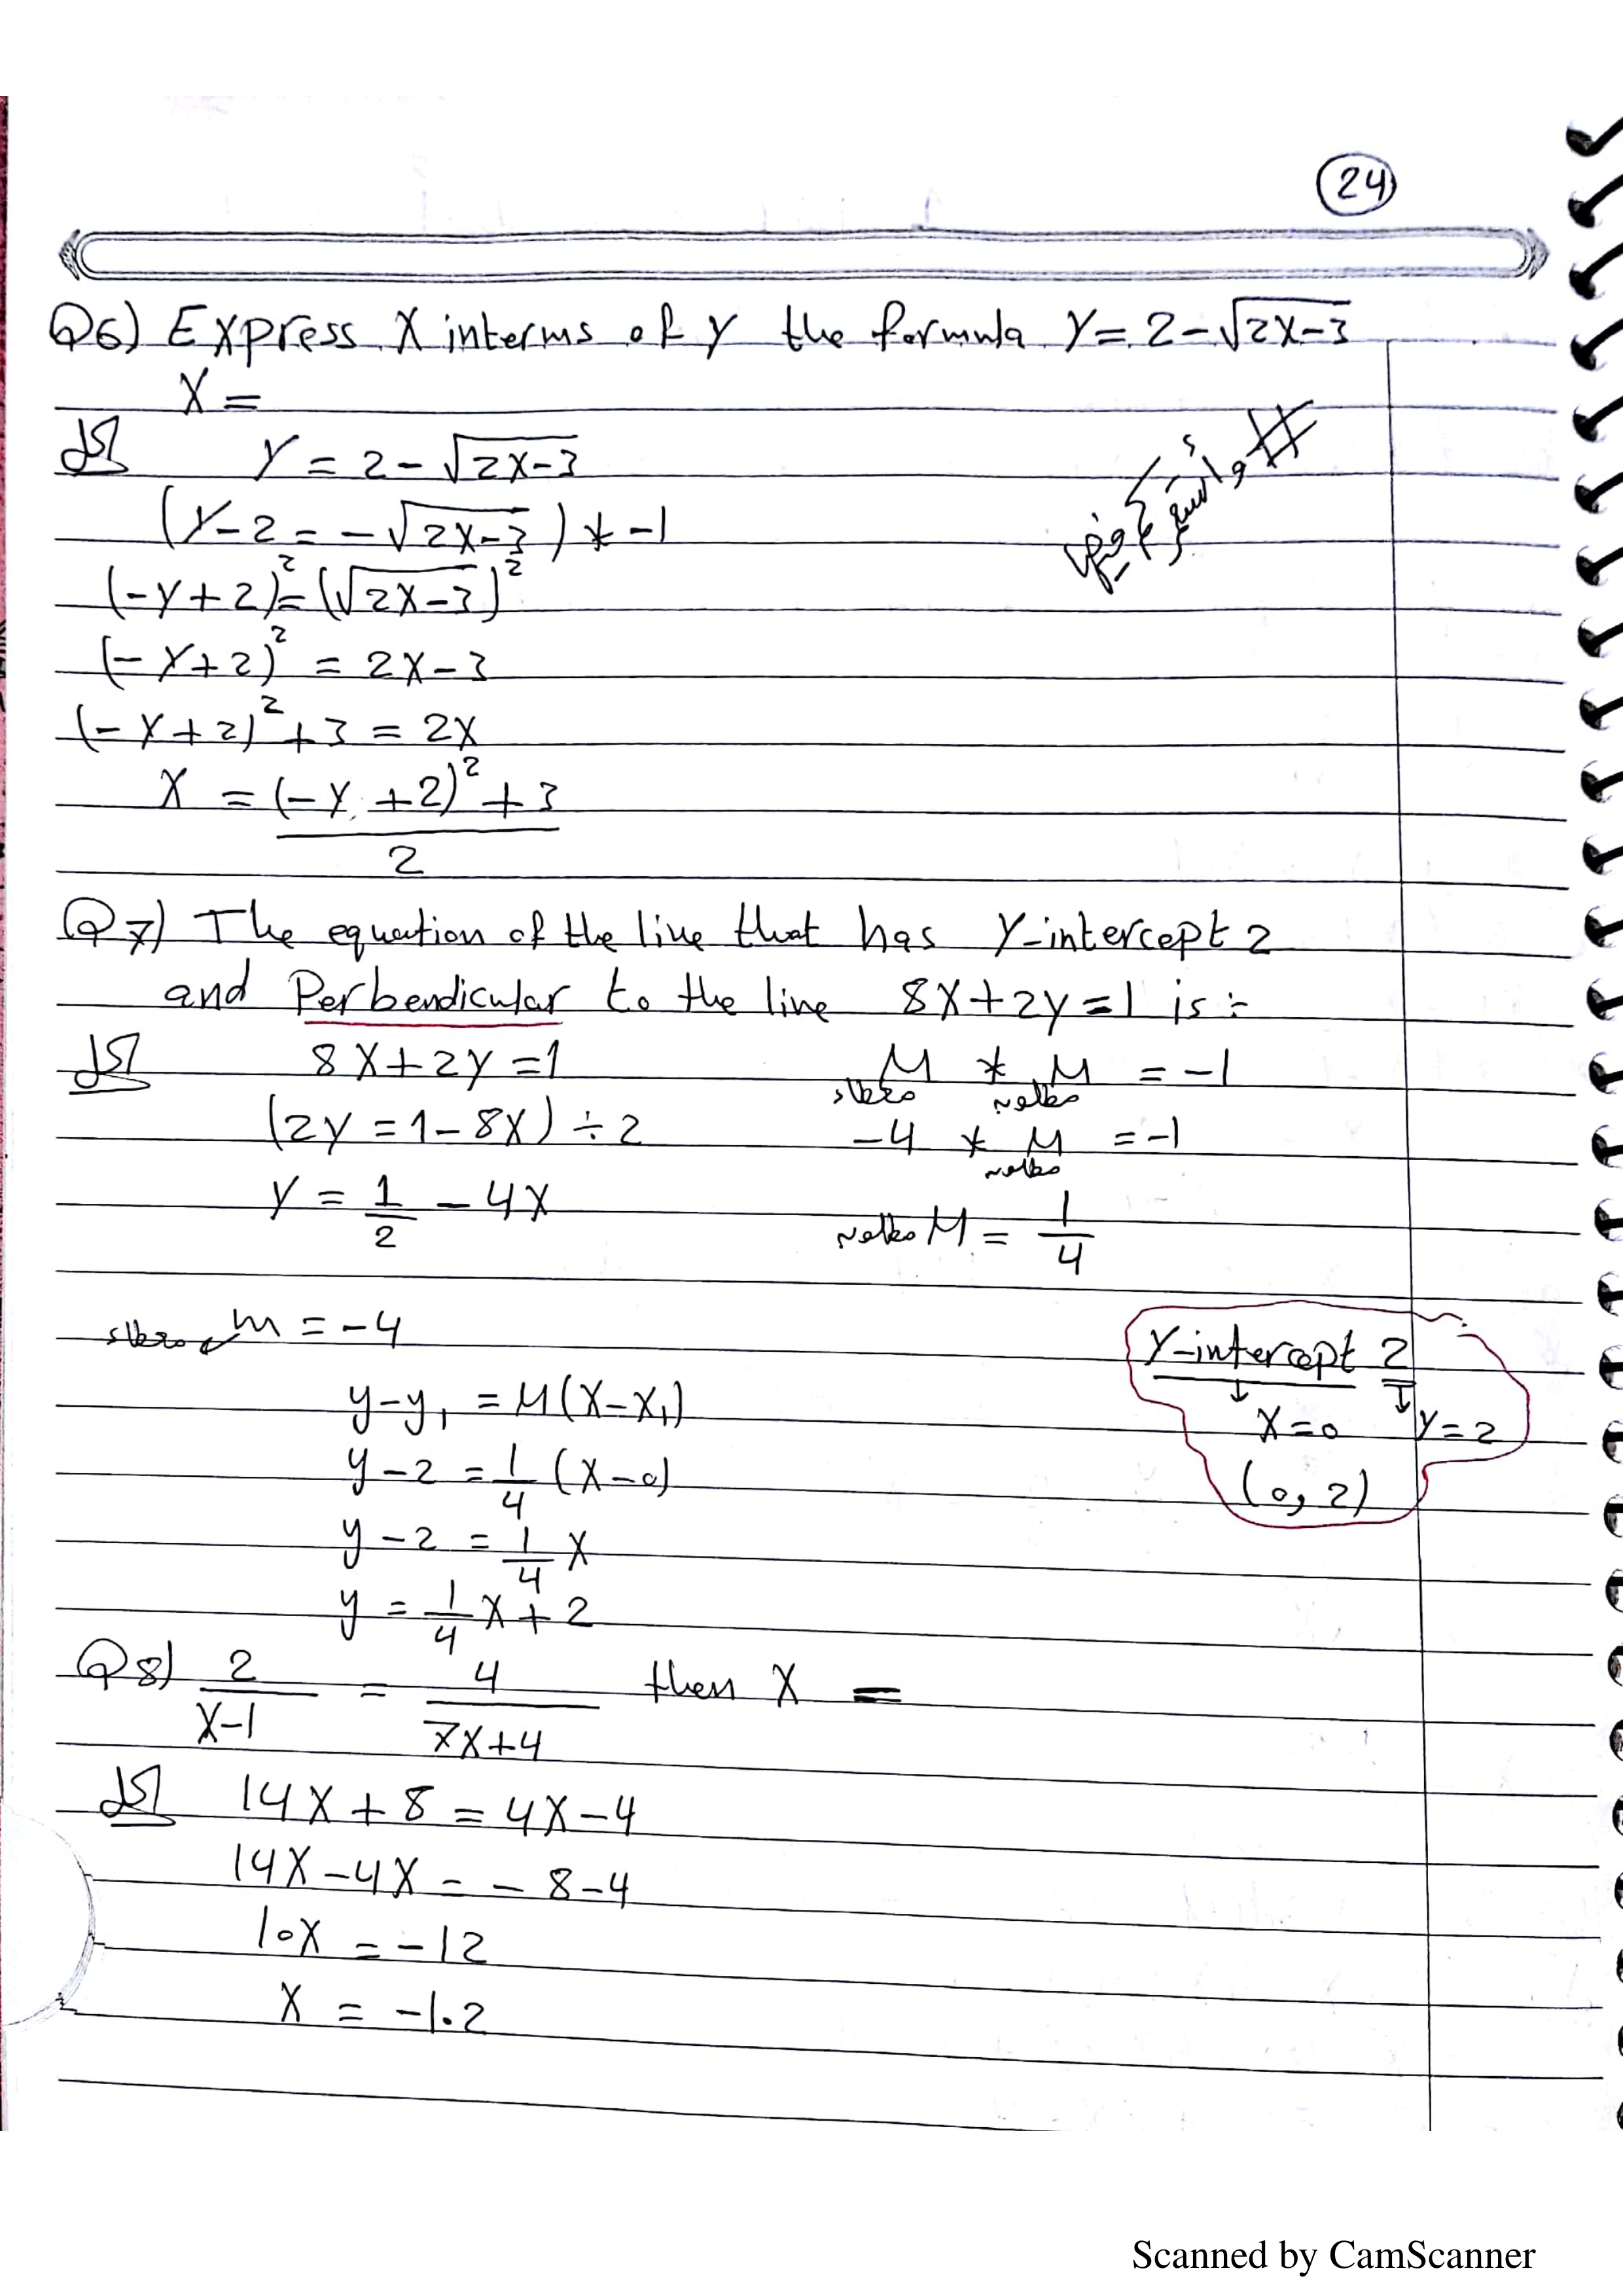 24
Q6) Express X interms of y the formula y = 2 - √2x-3
X =
الحل
y = 2 - √2x-3
(y - 2 = - √2x-3) * -1
(-y + 2)² = (√2x-3)²
(-y + 2)² = 2x - 3
(-y + 2)² + 3 = 2x
X = (-y + 2)² + 3
2
Q7) The equation of the line that has y-intercept 2
and Perbendicular to the line 8x + 2y = 1 is :-
الحل
8x + 2y = 1
M معطاه * M مطلوبه = -1
(2y = 1 - 8x) ÷ 2
-4 * M مطلوبه = -1
y = 1/2 - 4x
مطلوبه M = 1/4
معطاه m = -4
y-intercept 2
y - y₁ = M(x - x₁)
↓ ↓
x = 0 y = 2
y - 2 = 1/4 (x - 0)
(0, 2)
y - 2 = 1/4 x
y = 1/4 x + 2
Q8) 2/x-1 = 4/7x+4 then X =
الحل
14x + 8 = 4x - 4
14x - 4x = - 8 - 4
10x = -12
x = -1.2
Scanned by CamScanner